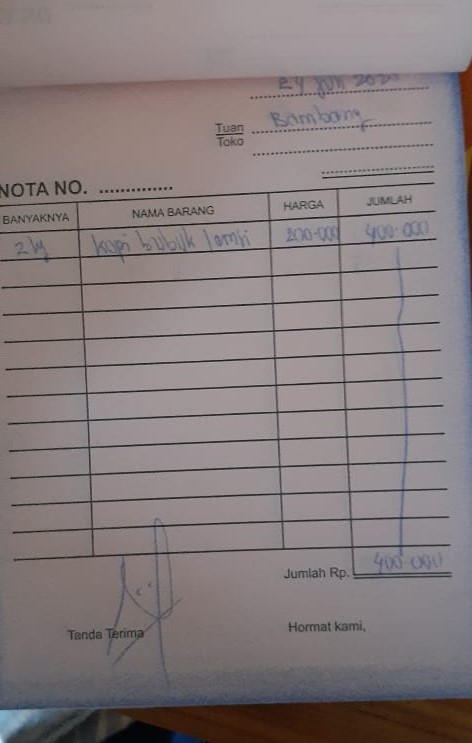 24 Juli 2020
Tuan Bambang
Toko
NOTA NO. ...............
BANYAKNYA NAMA BARANG HARGA JUMLAH
2 kg kopi bubuk 200.000 400.000
Jumlah Rp. 400.000
Tanda Terima Hormat kami,